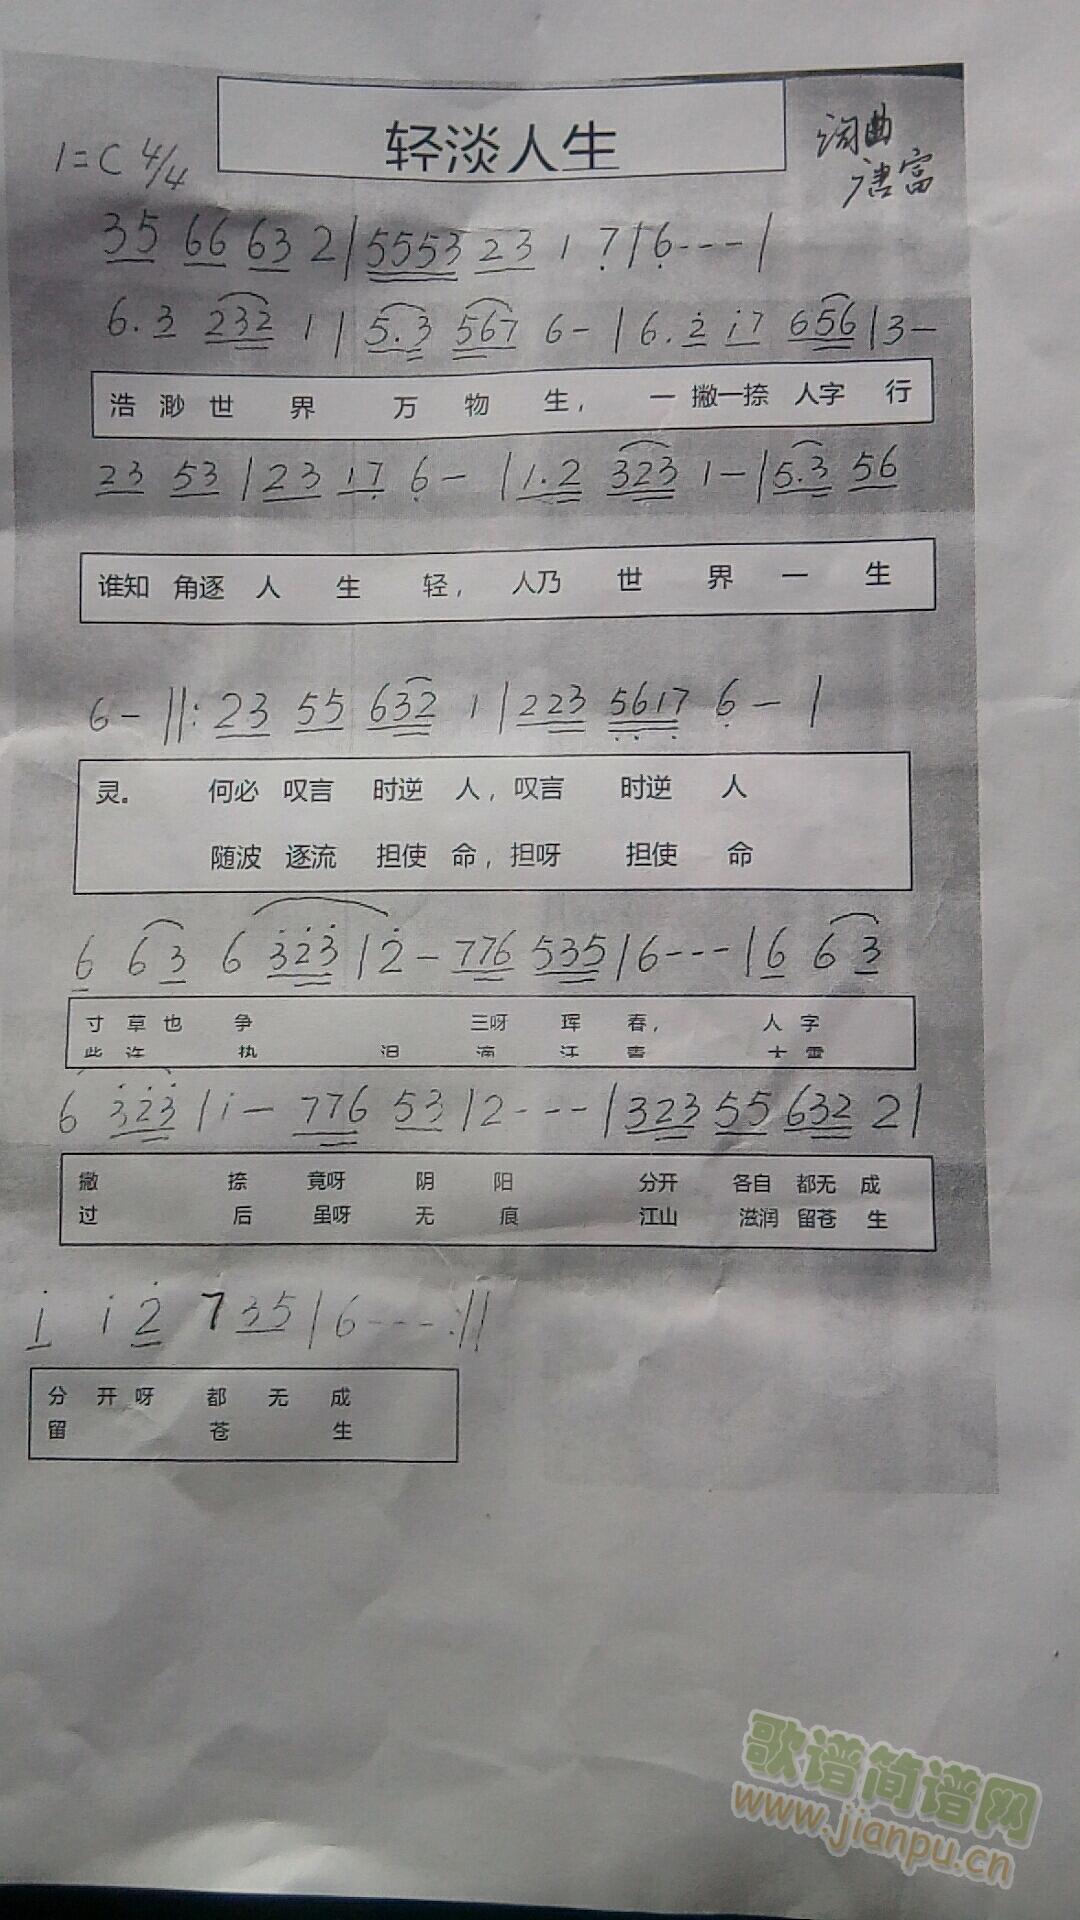 轻淡人生
词曲
唐富
1=C 4/4
35 66 63 2 | 5553 23 1 7̣ | 6̣--- |
6.3 232 1 | 5.3 567 6- | 6.2̇ i7 656 | 3-
浩 渺 世 界 万 物 生, 一 撇一捺 人字 行
23 53 | 23 17̣ 6̣- | 1.2 323 1- | 5.3 56
谁知 角逐 人 生 轻, 人乃 世 界 一 生
6- ||: 23 55 632 1 | 223 5̣6̣17̣ 6̣- |
灵。 何必 叹言 时逆 人, 叹言 时逆 人
随波 逐流 担使 命, 担呀 担使 命
6 63 6 3̇2̇3̇ | 2̇- 776 535 | 6--- | 6 63
寸 草也 争 三呀 珲 春, 人 字
些 许 执 泪 滴 汗
6 3̇2̇3̇ | i- 776 53 | 2--- | 323 55 632 2 |
撇 捺 竟呀 阴 阳 分开 各自 都无 成
过 后 虽呀 无 痕 江山 滋润 留苍 生
i i 2̇ 7 35 | 6---:||
分 开呀 都 无 成
留 苍 生
歌谱简谱网
www.jianpu.cn